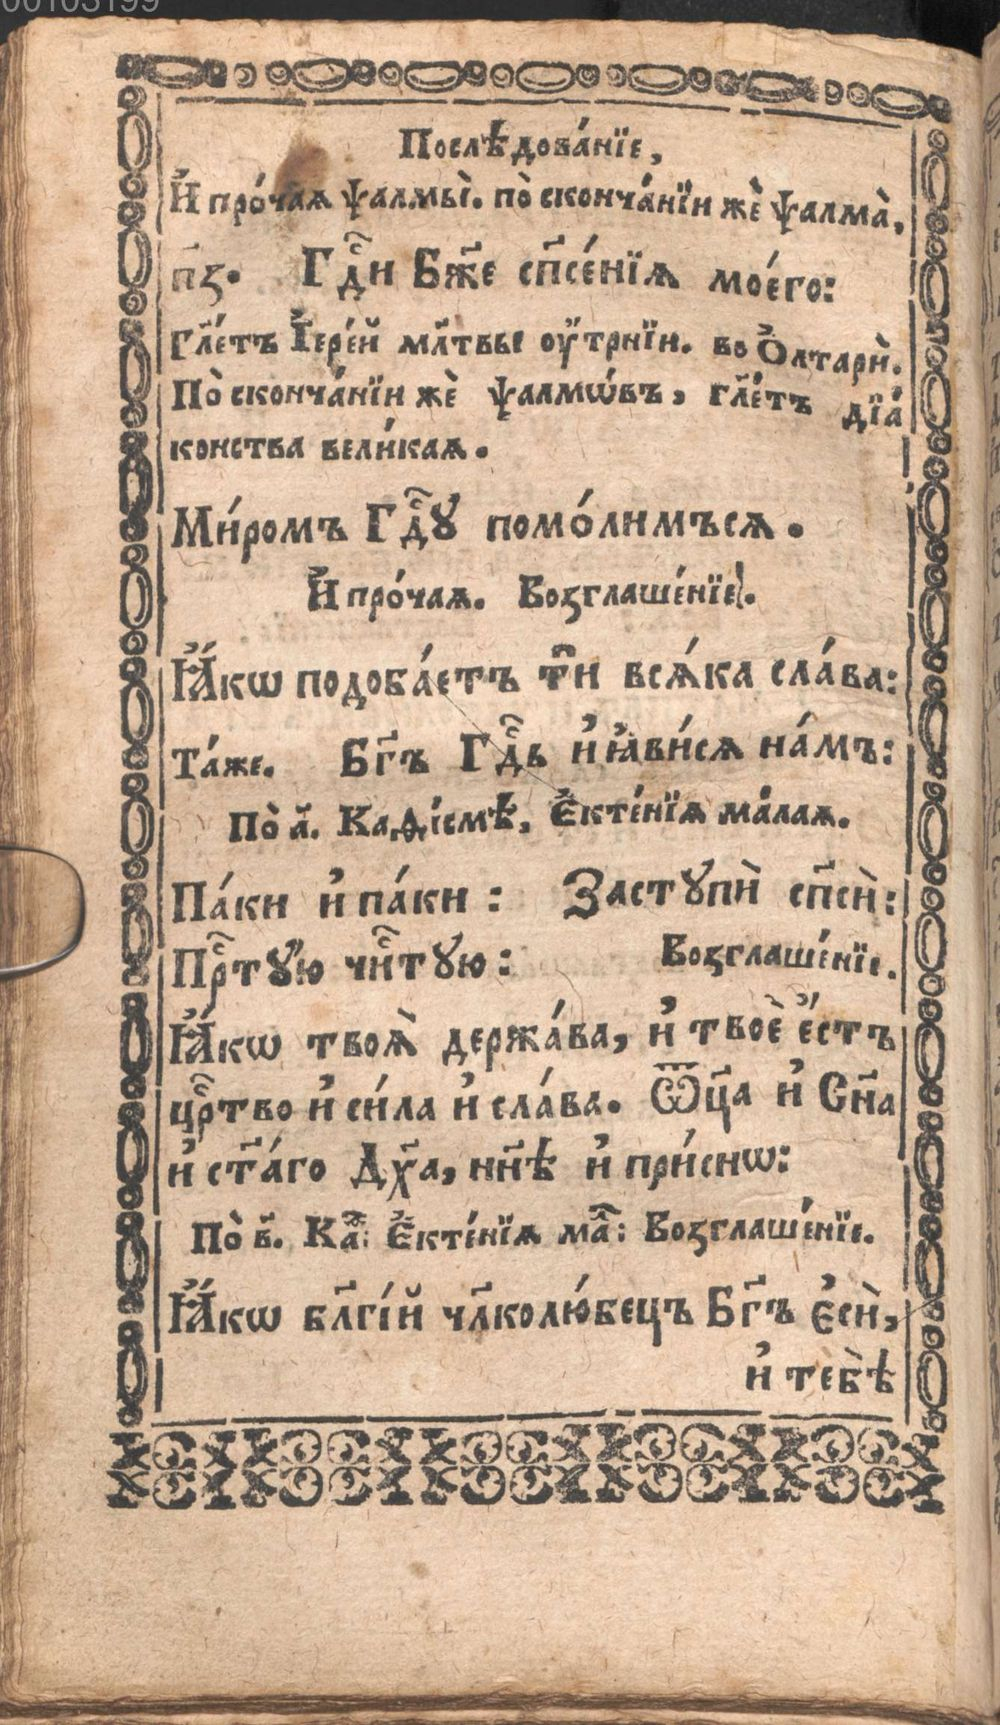 00103199
Послѣ́дова́нїе,
И҆ про́чаѧ ѱалмы̀. по̀ сконча́нїи жѐ ѱалма̀,
п҃з. Гдⷭ҇и Бж҃е сп҃се́нїѧ мое́го:
Гл҃етъ І҆ере́й мл҃твы оу҆́трнїи. во Ѻ҆лтарѝ.
По̀ сконча́нїи жѐ ѱалмѡ́въ, гл҃етъ дїа́
конства вели́каѧ.
Ми́ромъ Гдⷭ҇ꙋ помо́лимъсѧ.
И҆ про́чаѧ. Возглаше́нїе.
Ꙗ҆́кѡ подоба́етъ тⷪ҇и всѧ́ка сла́ва:
Та́же. Бг҃ъ Гдⷭ҇ь и҆ ꙗ҆ви́сѧ на́мъ:
По̀ а҃. Каѳі́смѣ, Є҆кте́нїѧ ма́лаѧ.
Па́ки и҆ па́ки: Застꙋпѝ сп҃сѝ:
Прⷭ҇тꙋ́ю чⷭ҇итꙋю: Возглаше́нїе.
Ꙗ҆́кѡ твоѧ̀ держа́ва, и҆ твоѐ є҆́стъ
црⷭ҇тво и҆ си́ла и҆ сла́ва. Ѿц҃а и҆ Сн҃а
и҆ ст҃а́го Дх҃а, нн҃ѣ и҆ при́снѡ:
По̀ в҃. Каⷴ҇: Є҆кте́нїѧ маⷧ҇: Возглаше́нїе.
Ꙗ҆́кѡ бл҃гі́й чл҃колю́бецъ Бг҃ъ є҆сѝ,
и҆ тебѣ̀